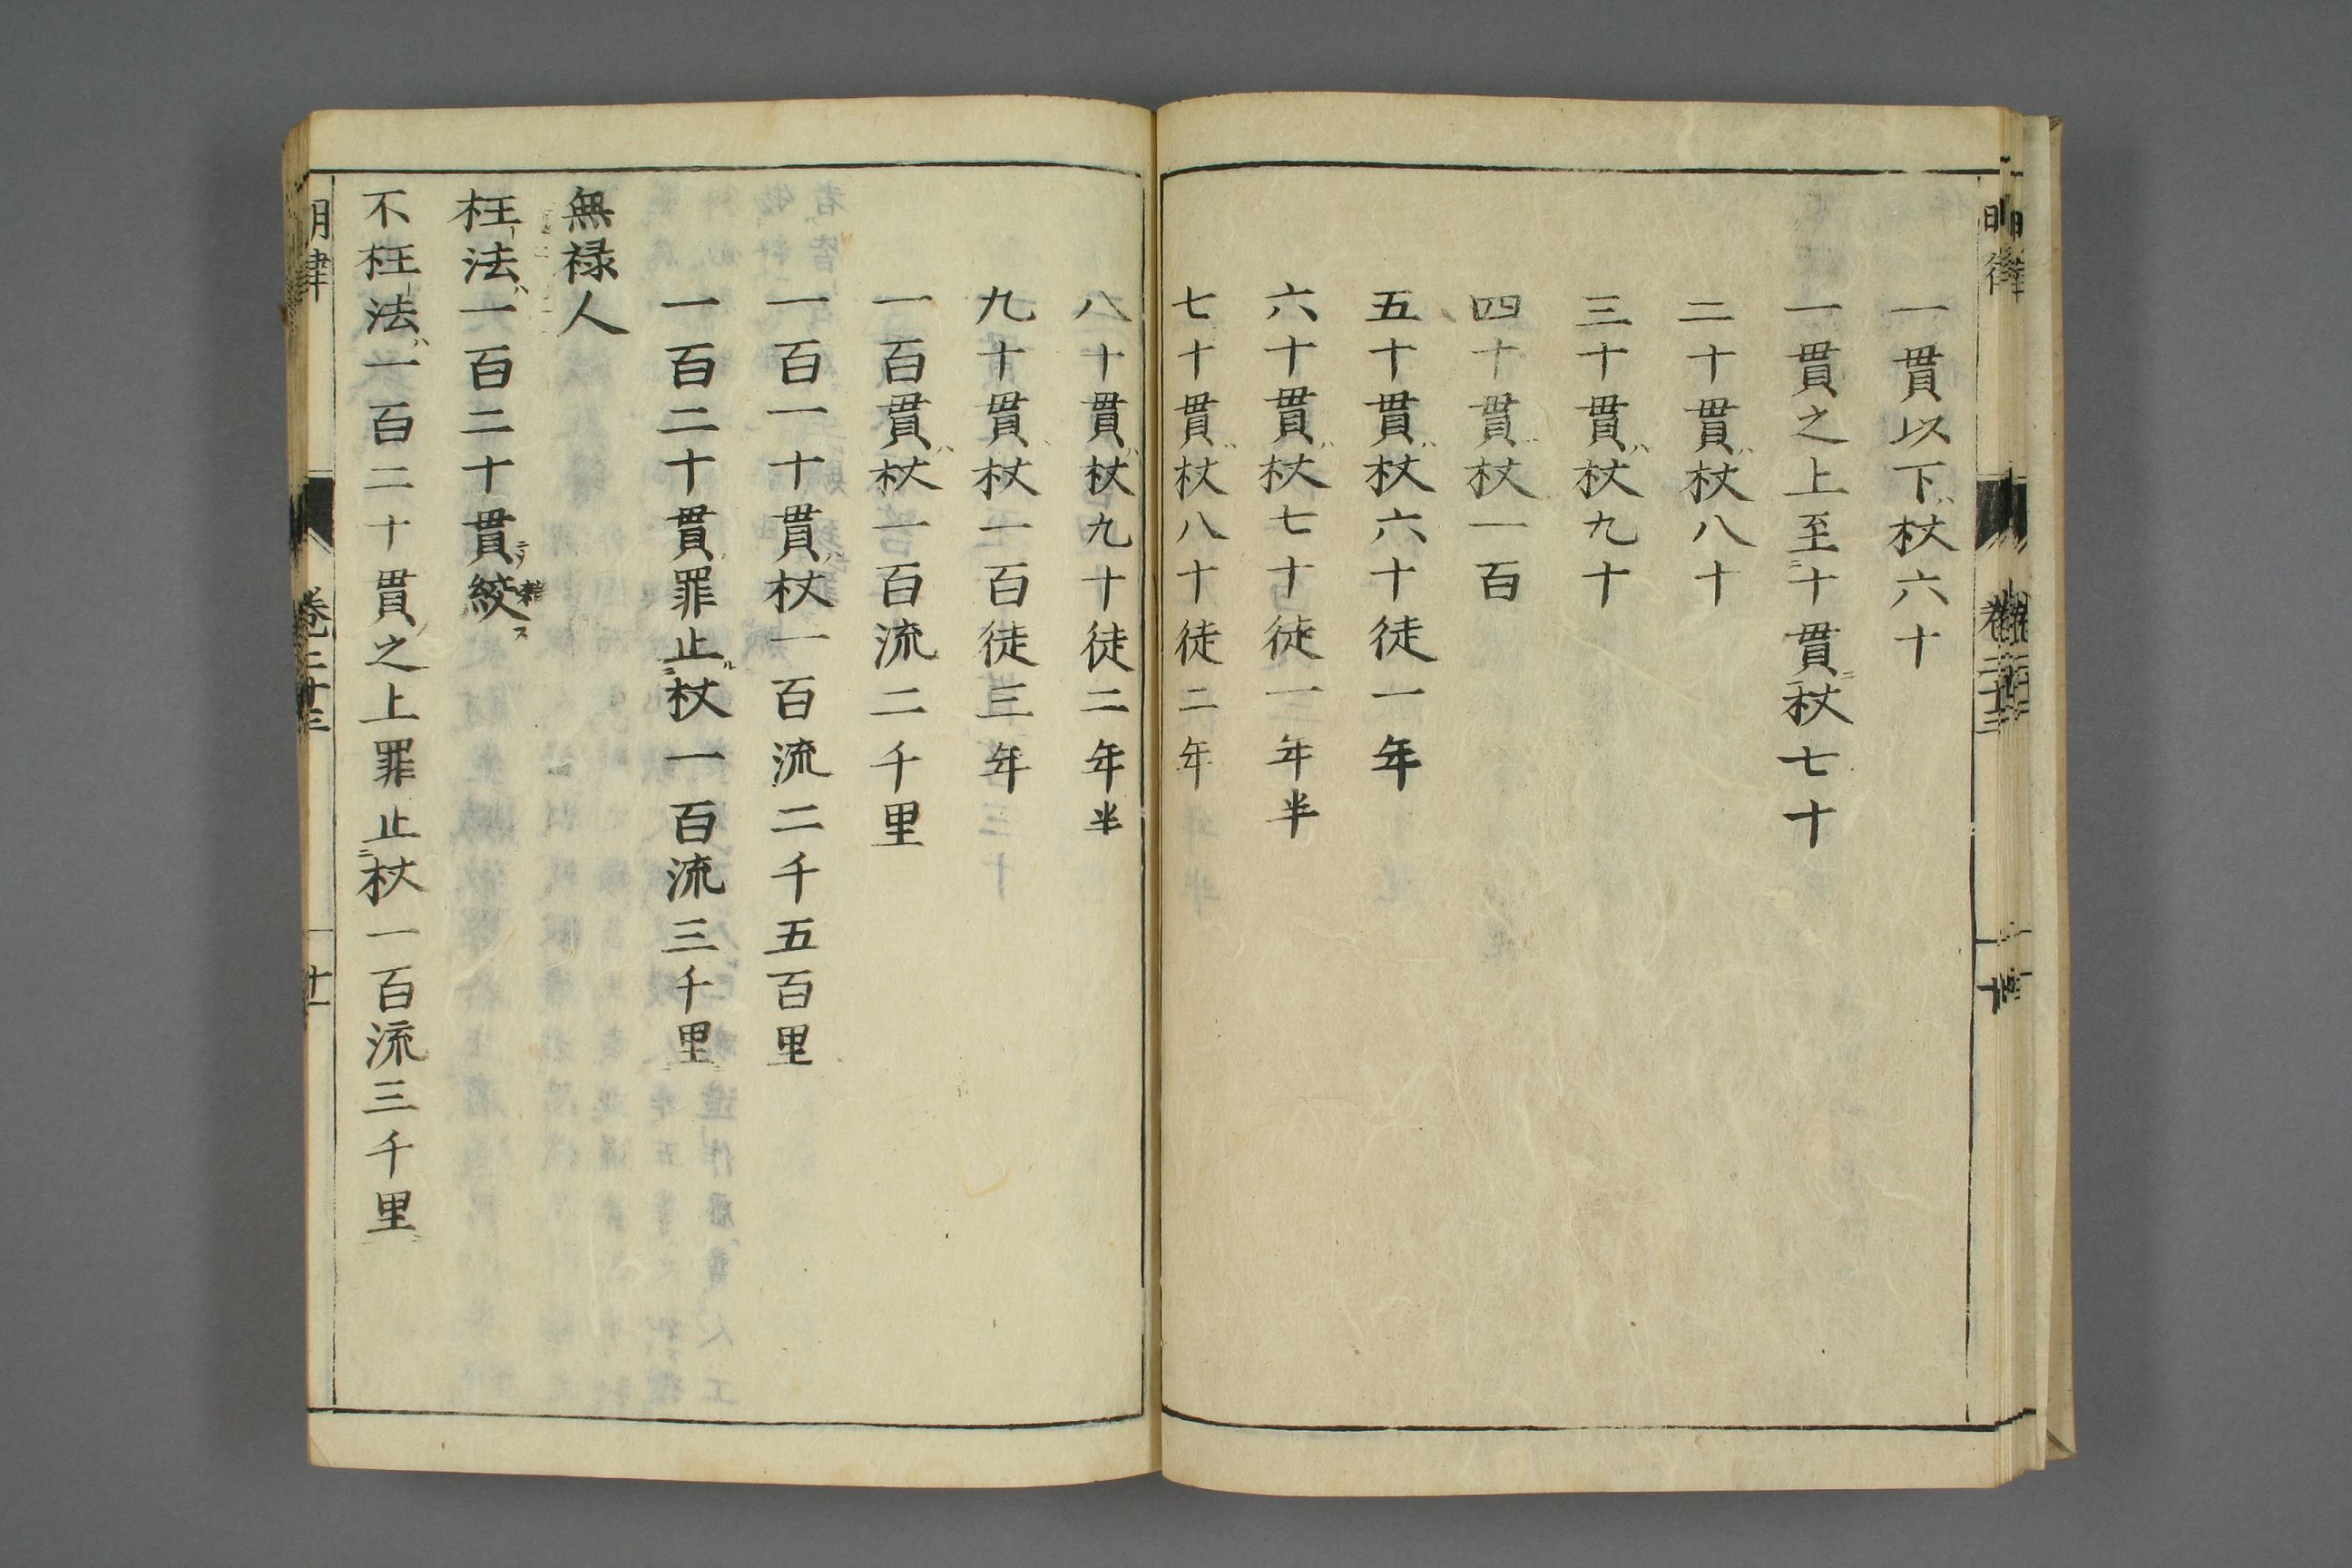 一貫以下杖六十
一貫之上至十貫杖七十
二十貫杖八十
三十貫杖九十
四十貫杖一百
五十貫杖六十徒一年
六十貫杖七十徒一年半
七十貫杖八十徒二年
八十貫杖九十徒二年半
九十貫杖一百徒三年
一百貫杖一百流二千里
一百一十貫杖一百流二千五百里
一百二十貫罪止杖一百流三千里
無禄人
枉法一百二十貫絞
不枉法一百二十貫之上罪止杖一百流三千里
明律 卷二十三 十一